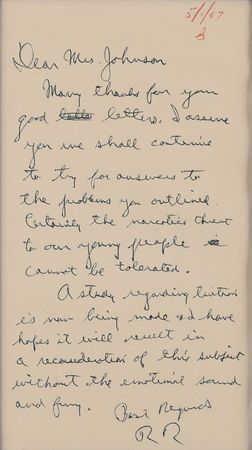 5/1/67
B
Dear Mrs. Johnson
Many thanks for your
good letters. I assure
you we shall continue
to try for answers to
the problems you outlined.
Certainly the narcotics threat
to our young people
cannot be tolerated.
A study regarding tuition
is now being made & I have
hopes it will result in
a reconsideration of this subject
without the emotional sound
and fury.
Best Regards
RR